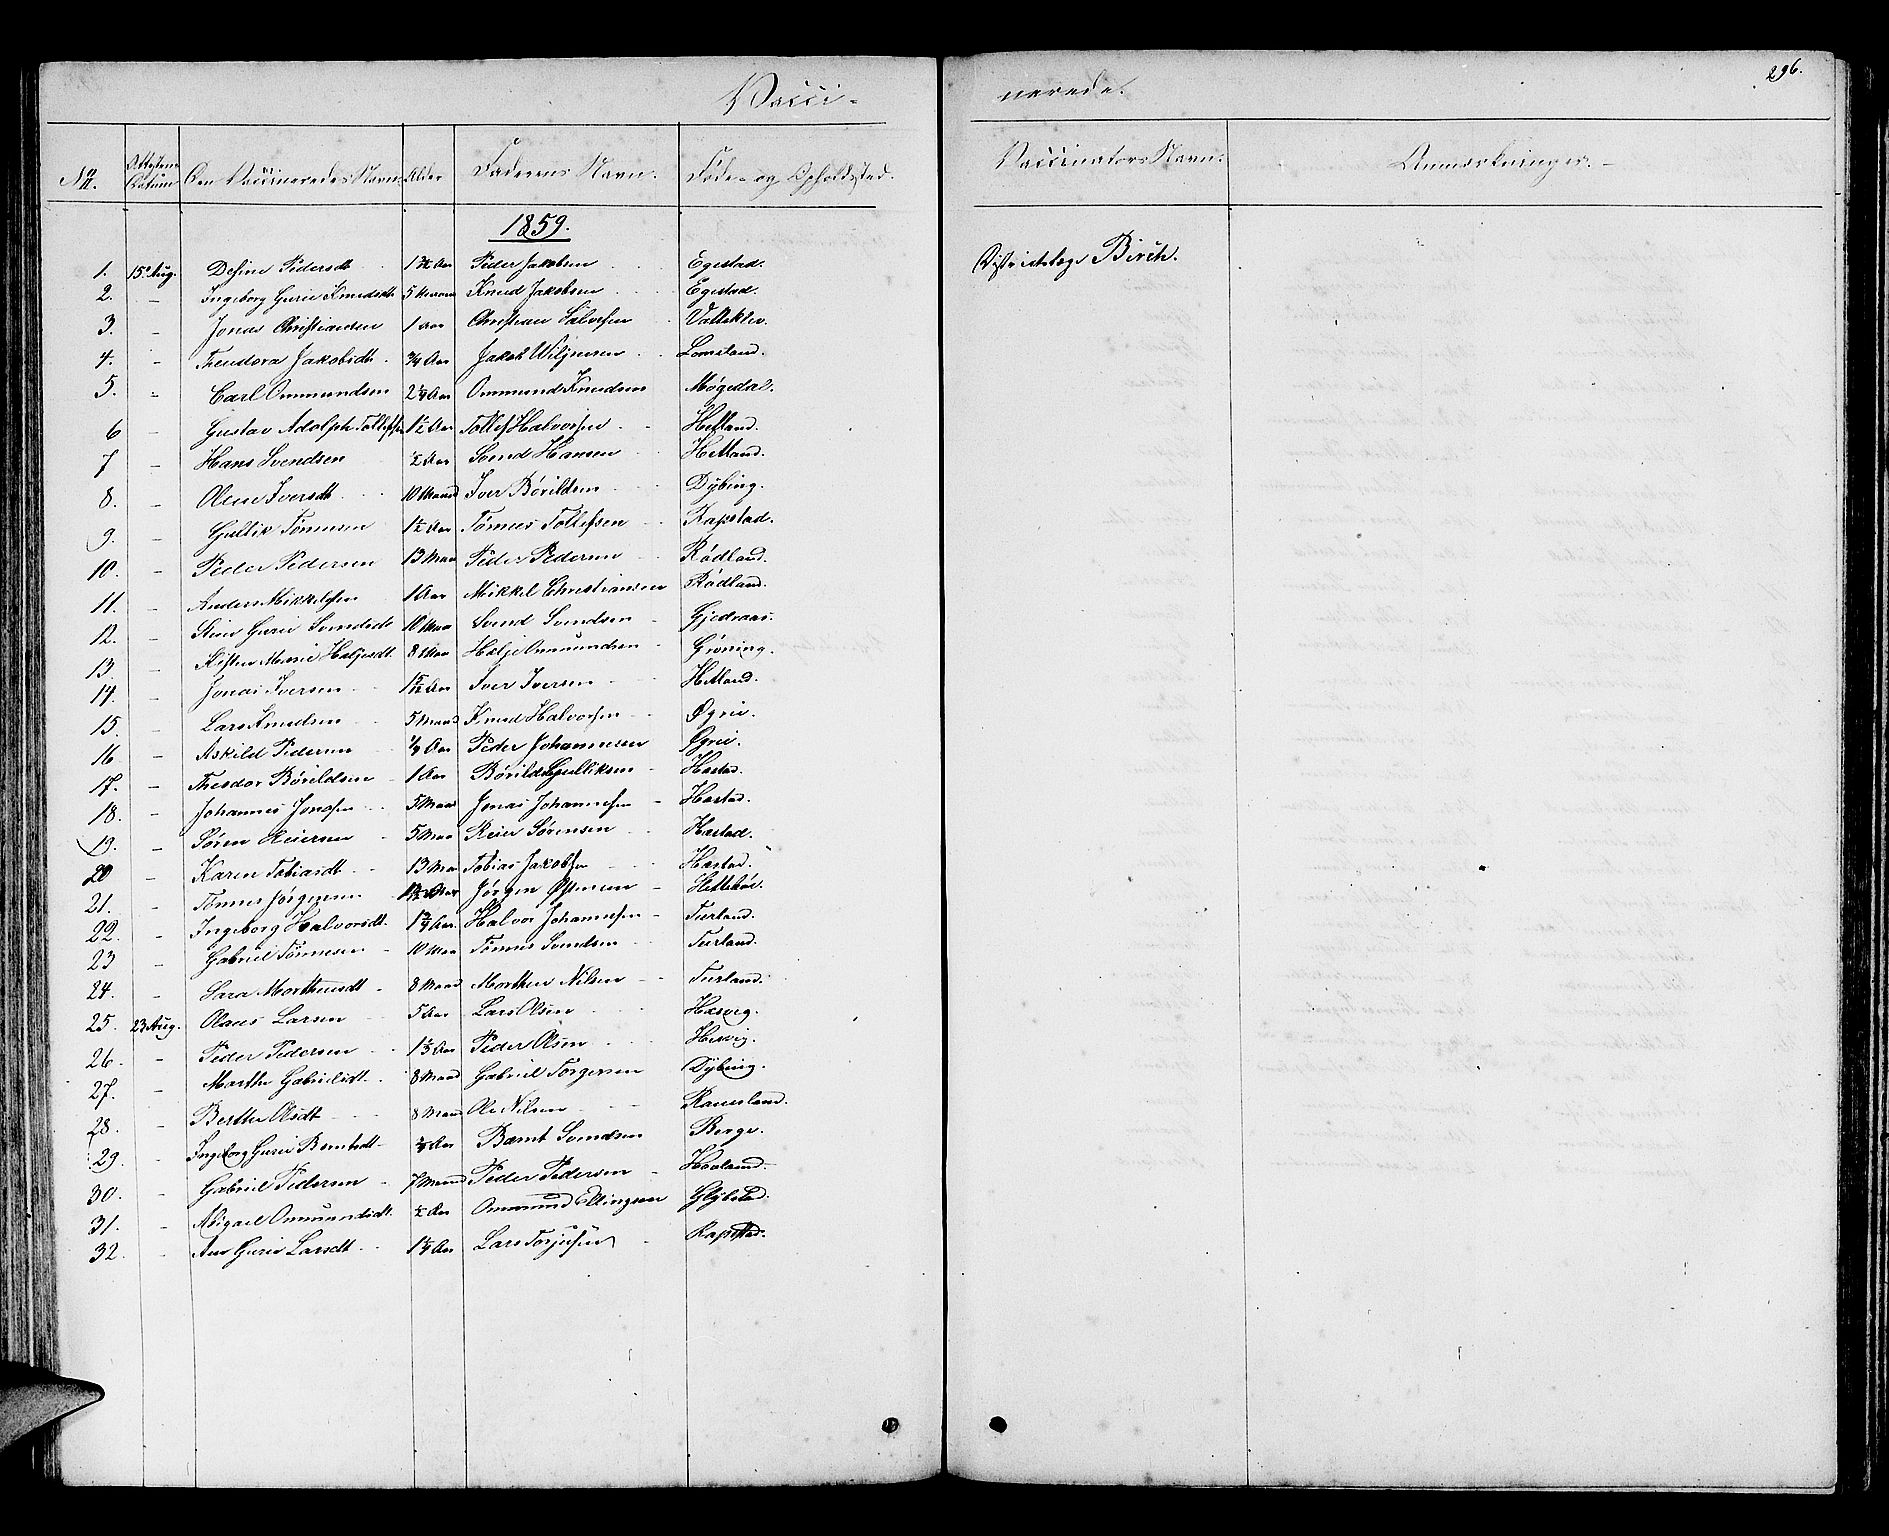 Vacci-
nerede.
296.
No. Attestens Datum Den Vaccineredes Navn. Alder Faderens Navn. Føde- og Opholdssted. Vaccinators Navn. Anmærkninger.
1859.
1. 15. Aug. Pedersdt Aar Peder Jakobsen Egestad. Districtslæge Birch.
2. - Ingeborg Gurie Knudsdt 5 Knud Jakobsen Egestad.
3. - Jonas Christiansen 1 Aar Christian Salvesen
4. - Theodora Jakobsdt. 3/4 Aar Jakob Lomeland.
5. - Carl Ommundsen Aar Ommund Knudsen Møgedal.
6 - Gustav Adolph Tollefsen 1½ Aar Tollef Halvorsen Hetland.
7 - Hans Svendsen ½ Aar Svend Hansen Hetland.
8. - Olene Iversdt 10 Maand Iver Børildsen Dybing.
9. - Gullik Tønnesen 1½ Aar Tønnes Tollefsen Rapstad.
10. - Peder Pedersen 13 Maan Peder Pedersen Rødland.
11. - Anders Mikkelsen 1 Aar Mikkel Christiansen Rødland.
12. - Stine Gurie Svendsdt 10 Maan Svend Svendsen Gjedraas.
13. - Marie Heljesdt 8 Maan Helje Ommundsen Grøning.
14. - Jonas Iversen Aar Iver Iversen Hetland.
15. - Lars Knudsen 5 Maand Knud Halvorsen Øgrei.
16 - Askild Pedersen Aar Peder Johannesen Øgrei.
17. - Theodor Børildsen 1 Aar Børild Gulliksen Hæstad.
18. - Johannes Jonasen 5 Maand Jonas Johannesen Hæstad.
19. - Søren Reiersen 5 Maan Reier Sørensen Hæstad.
20 - Karen Tobiasdt 13 Maan Tobias Jakobsen Hæstad.
21. - Tønnes Jørgensen Aar Jørgen
22. - Ingeborg Halvorsdt. Aar. Halvor Johannesen Terland.
23 - Gabriel Tønnesen 10 Maan Tønnes Svendsen Terland.
24. - Sara Morthensdt 8 Maand Morthen Nilsen Terland.
25. 23 Aug. Olaus Larsen 5 Aar Lars Olsen
26. - Peder Pedersen Aar Peder Olsen
27. - Marthe Gabrielsdt. 8 Maand Gabriel Torgersen Dybing.
28. - Berthe Olsdt 8 Maand Ole Nilsen
29. - Ingeborg Gurie Berntsdt Aar Bernt Svendsen Berge.
30. - Gabriel Pedersen 7 Maand Peder Pedersen Haaland.
31. - Abigael Ommundsdt. ½ Aar Ommund Ellingsen
32. - Ane Gurie Larsdt Aar Lars Torjusen Rapstad.